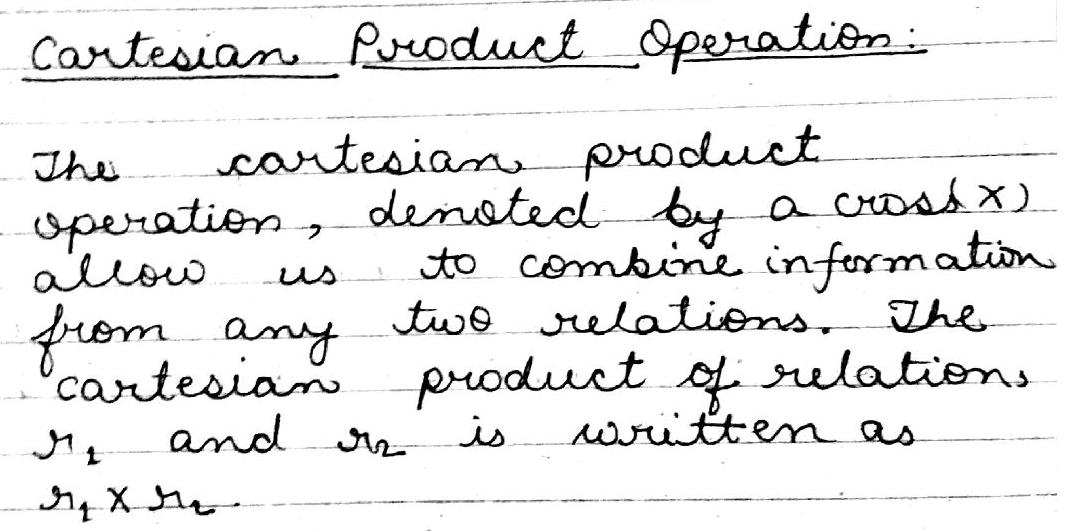 Cartesian Product Operation:
The cartesian product
operation, denoted by a cross(x)
allow us to combine information
from any two relations. The
cartesian product of relations
r₁ and r₂ is written as
r₁ x r₂.